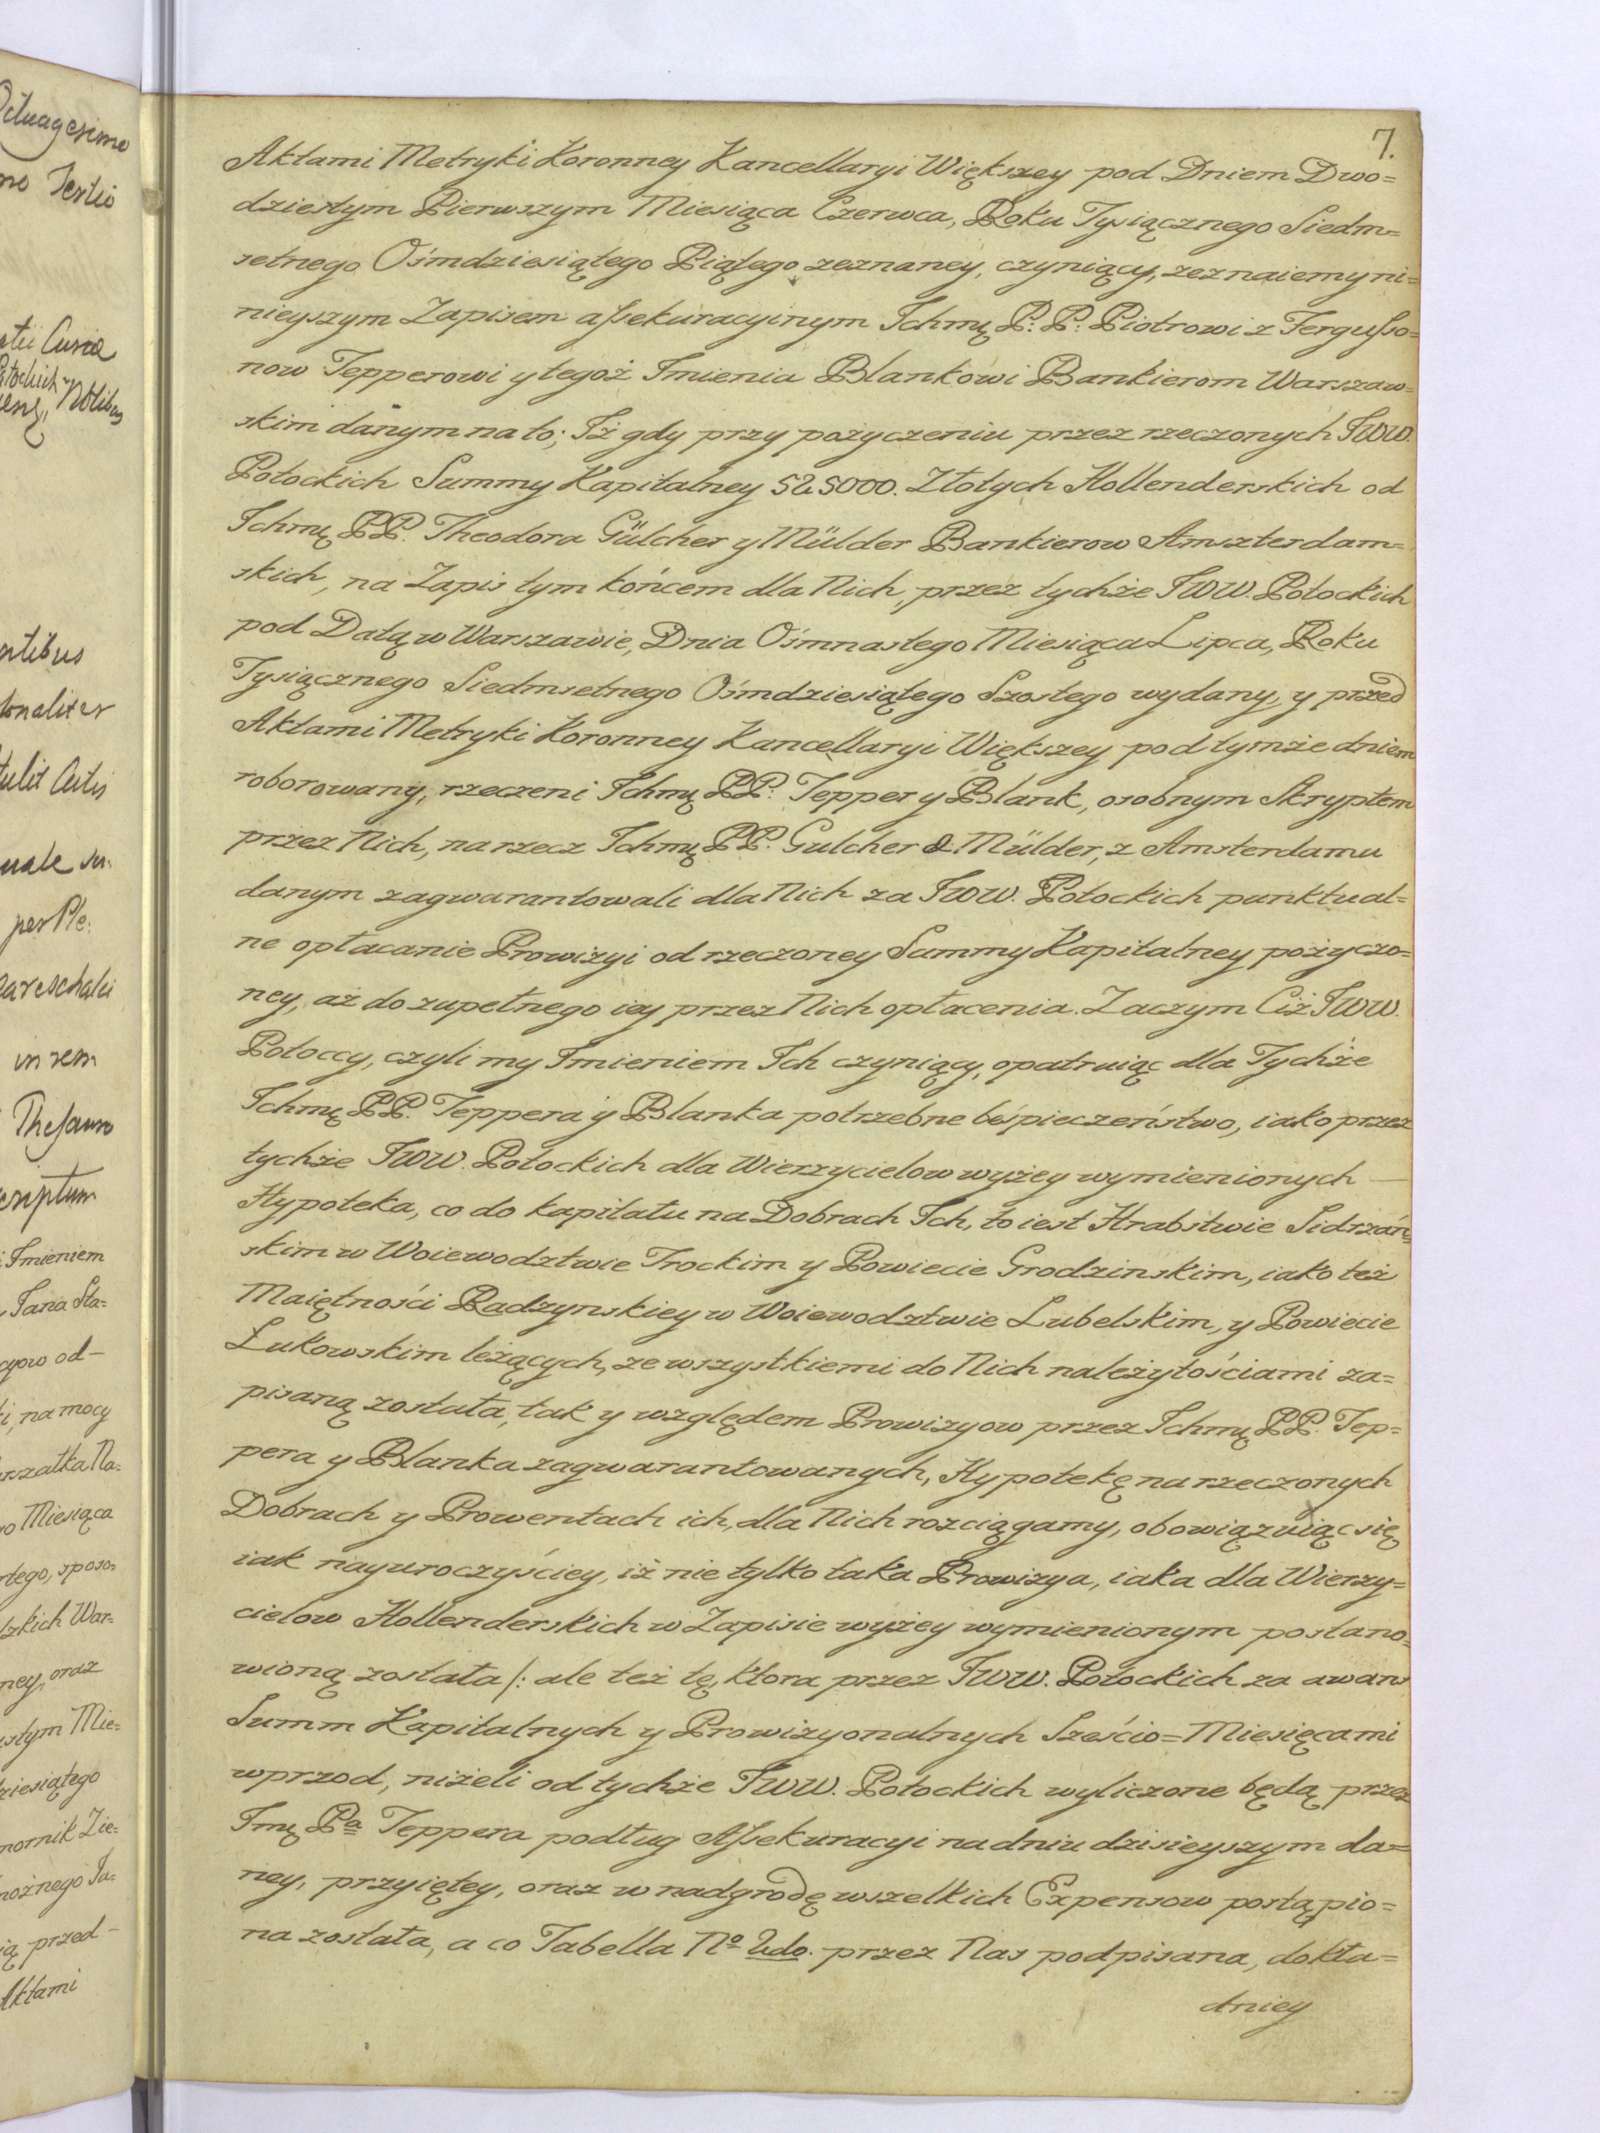 7.
Aktami Metryki Koronney Kancellaryi Większey pod Dniem Dwo=
dziestym Pierwszym Miesiąca Czerwca, Roku Tysiącznego Siedm=
setnego Ośmdziesiątego Piątego zeznaney, czyniący, zeznaiemy ni=
nieyszym Zapisem assekuracyinym Ichmę P.P. Piotrowi z Fergusso=
now Tepperowi y tegoż Imienia Blankowi Bankierom Warszaw=
skim danym na to; Iż gdy przy pożyczeniu przez rzeczonych JWW.
Potockich Summy Kapitalney 525000. Złotych Hollenderskich od
Ichmę PP. Theodora Gülcher y Mülder Bankierow Amszterdam=
skich, na Zapis tym końcem dla Nich, przez tychże JWW. Potockich
pod Datą w Warszawie, Dnia Ośmnastego Miesiąca Lipca, Roku
Tysiącznego Siedmsetnego Ośmdziesiątego Szostego wydany, y przed
Aktami Metryki Koronney Kancellaryi Większey pod tymże dniem
roborowany, rzeczeni Ichmę PP. Tepper y Blank, osobnym Skryptem
przez Nich, na rzecz Ichmę PP. Gulcher & Mülder, z Amsterdamu
danym zagwarantowali dla Nich za JWW. Potockich punktual=
ne opłacanie Prowizyi od rzeczoney Summy Kapitalney pożyczo=
ney, aż do zupełnego iey przez Nich opłacenia. Zaczym Ciż JWW.
Potoccy, czyli my Imieniem Ich czyniący, opatruiąc dla Tychże
Ichmę PP. Teppera y Blanka potrzebne beśpieczeństwo, iako przez
tychże JWW. Potockich dla Wierzycielow wyżey wymienionych —
Hypoteka, co do kapitału na Dobrach Ich, to iest Hrabstwie Sidrzań=
skim w Woiewodztwie Trockim y Powiecie Grodzinskim, iako też
Maiętności Radzynskiey w Woiewodztwie Lubelskim, y Powiecie
Łukowskim leżących, ze wszystkiemi do Nich należytościami za=
pisaną została, tak y względem Prowizyow przez Ichmę PP. Tep=
pera y Blanka zagwarantowanych, Hypotekę na rzeczonych
Dobrach y Prowentach ich, dla Nich rozciągamy, obowiązuiąc się
iak nayuroczyściey, iż nie tylko taka Prowizya, iaka dla Wierzy=
cielow Hollenderskich w Zapisie wyżey wymienionym postano=
wioną została /: ale też tę, ktora przez JWW. Potockich za awans
Summ Kapitalnych y Prowizyonalnych Sześcio=Miesięcami
wprzod, niżeli od tychże JWW. Potockich wyliczone będą przez
Jmę Pa Teppera podług Assekuracyi na dniu dzisieyszym da=
ney, przyiętey, oraz w nadgrodę wszelkich Expensow postąpio=
na została, a co Tabella No 2do. przez Nas podpisana, dokła=
dniey